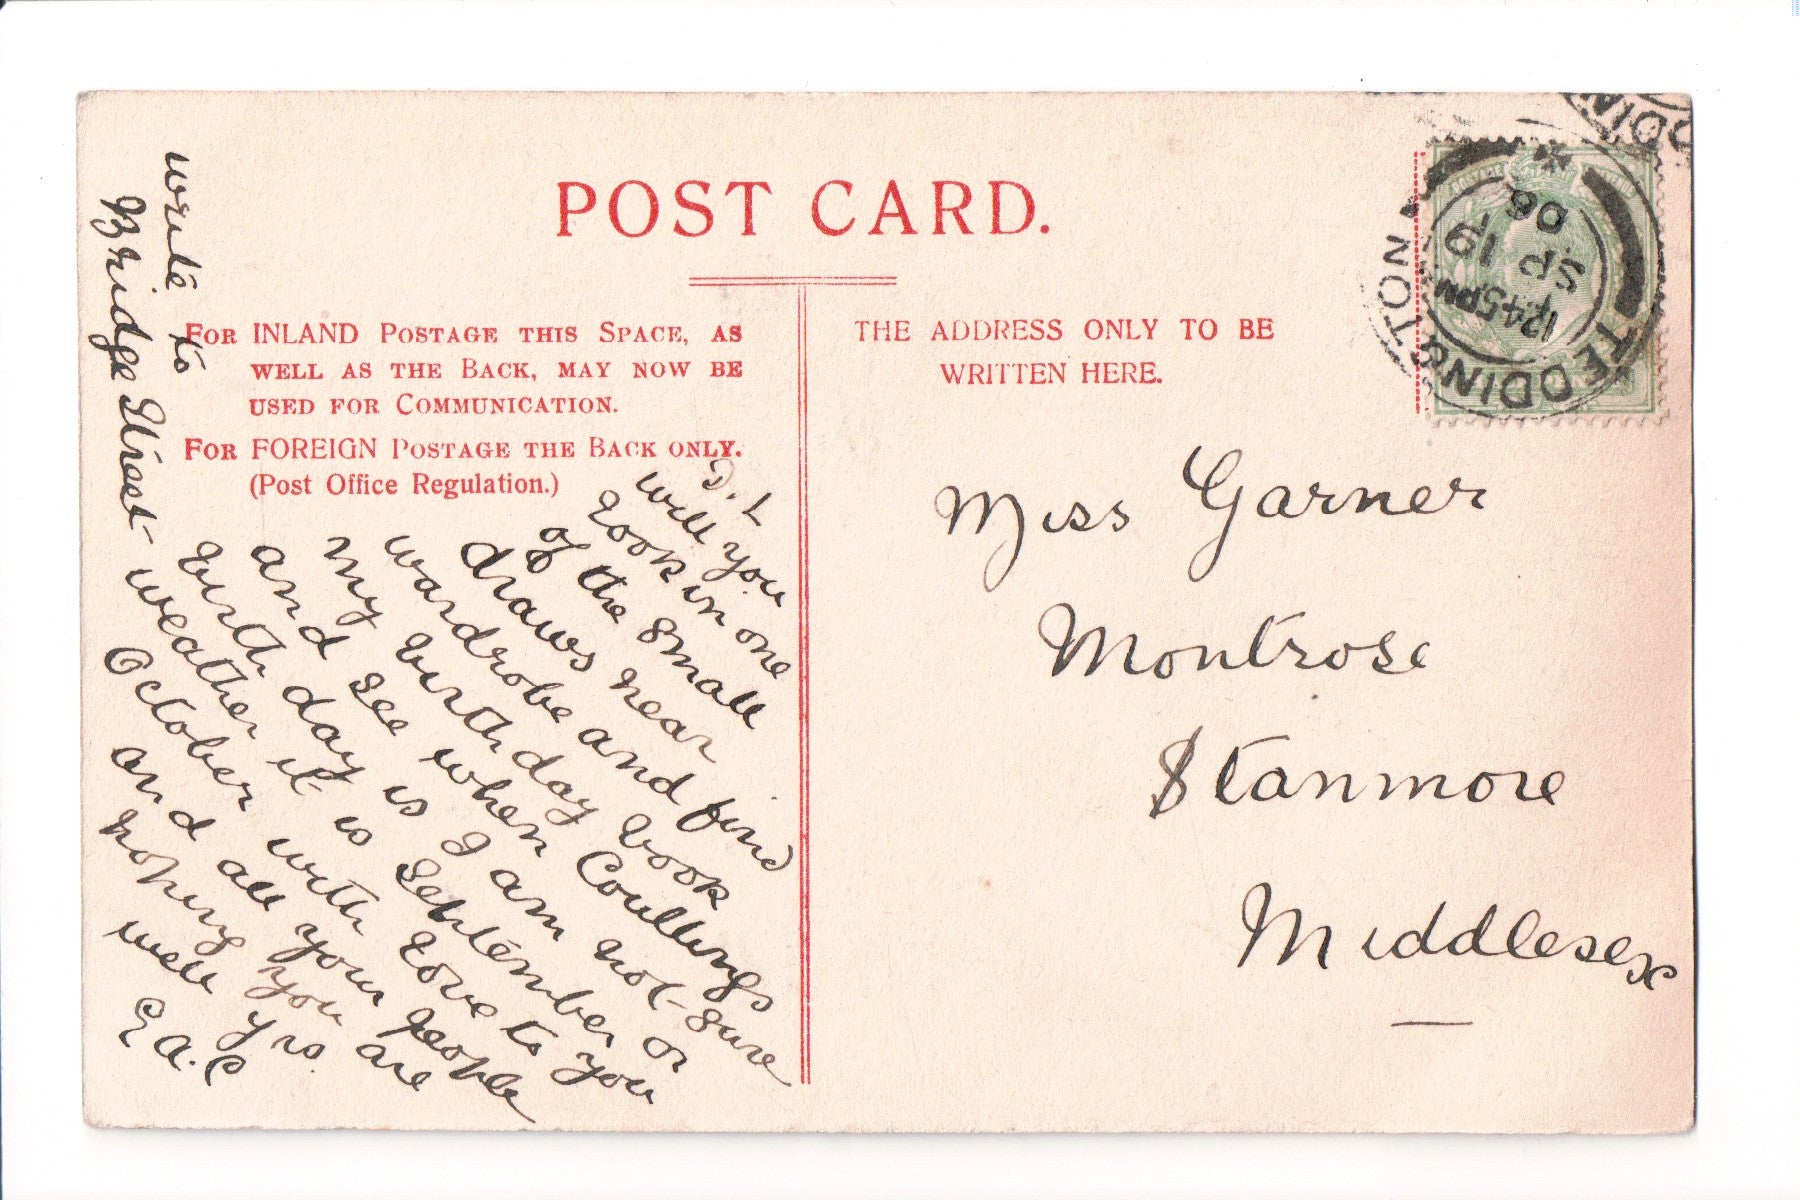 POST CARD.
FOR INLAND POSTAGE THIS SPACE, AS
WELL AS THE BACK, MAY NOW BE
USED FOR COMMUNICATION.
FOR FOREIGN POSTAGE THE BACK ONLY.
(Post Office Regulation.)
THE ADDRESS ONLY TO BE
WRITTEN HERE.
TEDDINGTON
1245PM
SP 19
06
Miss Garner
Montrose
Stanmore
Middlesex
D. L
will you
look in one
of the small
draws near
wardrobe and find
my birthday book
and see when Coullings
birthday is I am not sure
weather it is September or
October with love to you
and all your people
hoping you are
well yrs
E A. C
write to
Bridge Street